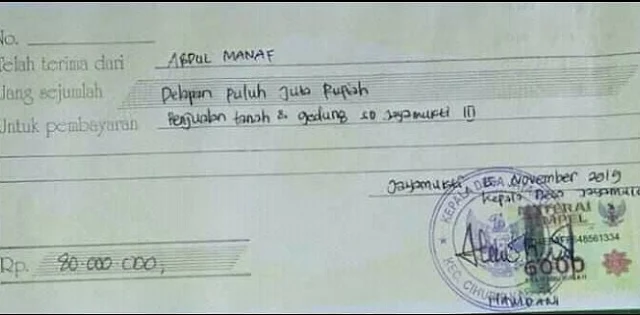 No.
Telah terima dari ABDUL MANAF
Uang sejumlah Delapan Puluh Juta Rupiah
Untuk pembayaran Penjualan tanah & gedung SD Jayamukti III
Jayamukti November 2019
Kepala Desa Jayamukti
KEPALA DESA
METERAI
TEMPEL
648561334
6000
KEC. CIHURIP
Rp. 80.000.000,
HAMDANI